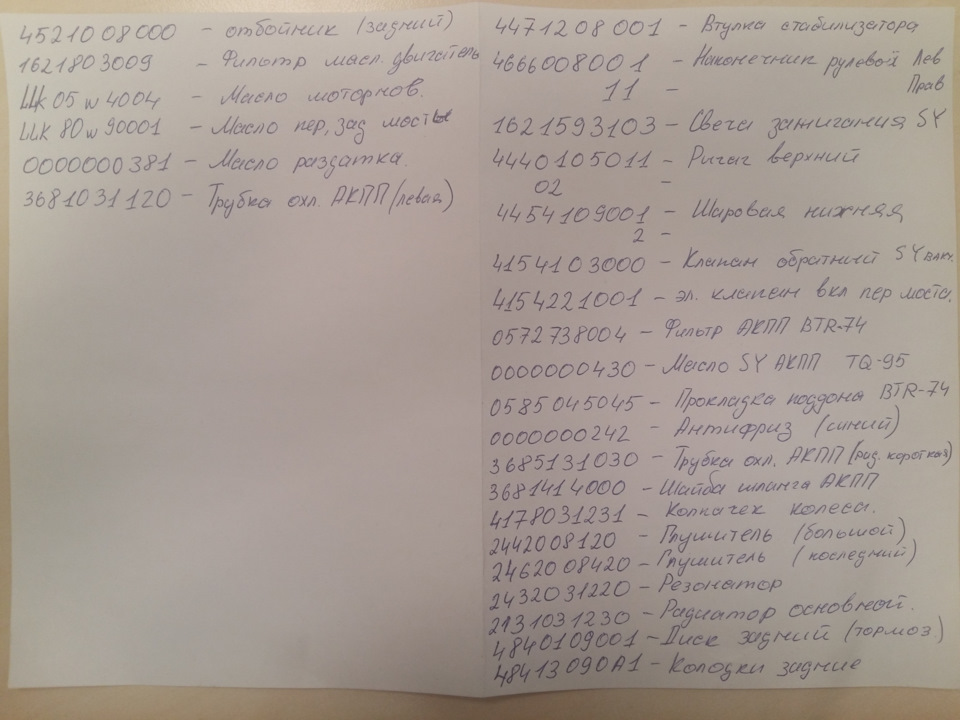 4521008000 - отбойник (задний)
1621803009 - Фильтр масл. двигатель
ШК 05w4004 - Масло моторнов.
ШК 80w90001 - Масло пер, зад мост
0000000381 - Масло раздатка.
3681031120 - Трубка охл. АКПП (левая)
4471208001 - Втулка стабилизатора
4666008001 - Наконечник рулевой Лев
11 - Прав
1621593103 - Свеча зажигания SY
4440105011 - Ричаг верхний
02 -
4454109001 - Шаровая нижняя
2 -
4154103000 - Клапан обратний SY вакк.
4154221001 - эл. клапан вкл пер моста.
0572738004 - Фильтр АКПП BTR-74
0000000430 - Масло SY АКПП TQ-95
0585045045 - Прокладка поддона BTR-74
0000000242 - Антифриз (синий)
3685131030 - Трубка охл. АКПП (рад. короткая)
3681414000 - Шайба шланга АКПП
4178031231 - Колпачек колеса.
2442008120 - Глушитель (большой)
2462008420 - Глушитель (последний)
2432031220 - Резонатор
2131031230 - Радиатор основной.
4840109001 - Диск задний (тормоз.)
48413090A1 - Колодки задние